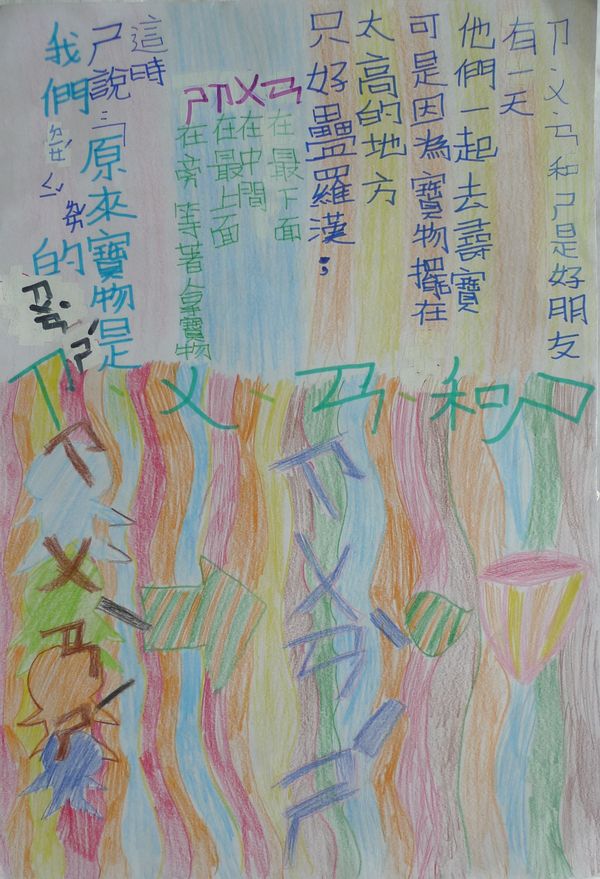 ㄗㄨㄢ和ㄕ是好朋友
有一天
他們一起去尋寶
可是因為寶物擺在
太高的地方
只好疊羅漢；
ㄢ在最下面
ㄨ在中間
ㄗ在最上面
ㄕ在旁等著拿寶物
這時
ㄕ說：「原來寶物是
我們的ㄗㄨㄢˋㄕˊ!
ㄗ、ㄨ、ㄢ、和ㄕ
ㄗㄨㄢˋㄕˊ
ㄗㄨㄢˋㄕˊ